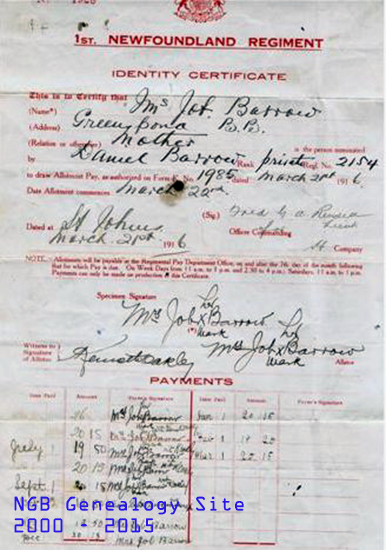 1ST. NEWFOUNDLAND REGIMENT
IDENTITY CERTIFICATE
This is to Certify that Mrs Job. Barrow
(Name)
(Address) Greenspond B.B.
(Relation or otherwise) Mother is the person nominated
by Daniel Barrow Rank private Regl. No. 2154
to draw Allotment Pay, as authorized on Form K. No. 1985 dated March 21st 1916
Date Allotment commences March 22nd
Dated at St Johns (Sig.)
March 21st 1916 Officer Commanding
A Company
NOTE.: Allotments will be payable at the Regimental Pay Department Office, on and after the 7th day of the month following
that for which Pay is due. On Week Days from 11 a.m. to 1 p.m. and 2.30 to 4 p.m.; Saturdays, 11 a.m. to 1 p.m.
Payments can only be made on production of this Certificate.
Specimen Signature her
Mrs Job X Barrow her
Mark Mrs Job X Barrow
Mark
Witness to
Signature of
Allottee Kenneth Oakley Allottee
PAYMENTS
Date Paid Amount Payee's Signature Date Paid Amount Payee's Signature
Mrs Job Barrow Jan 1 20 15
20 15 1 20
July 1 19 50 Mar 1 20 15
20 15
Sept 1 20 15 Mrs Job Barrow
NGB Genealogy Site
2000 - 2015
50 Barrow
Dec Mrs Job Barrow